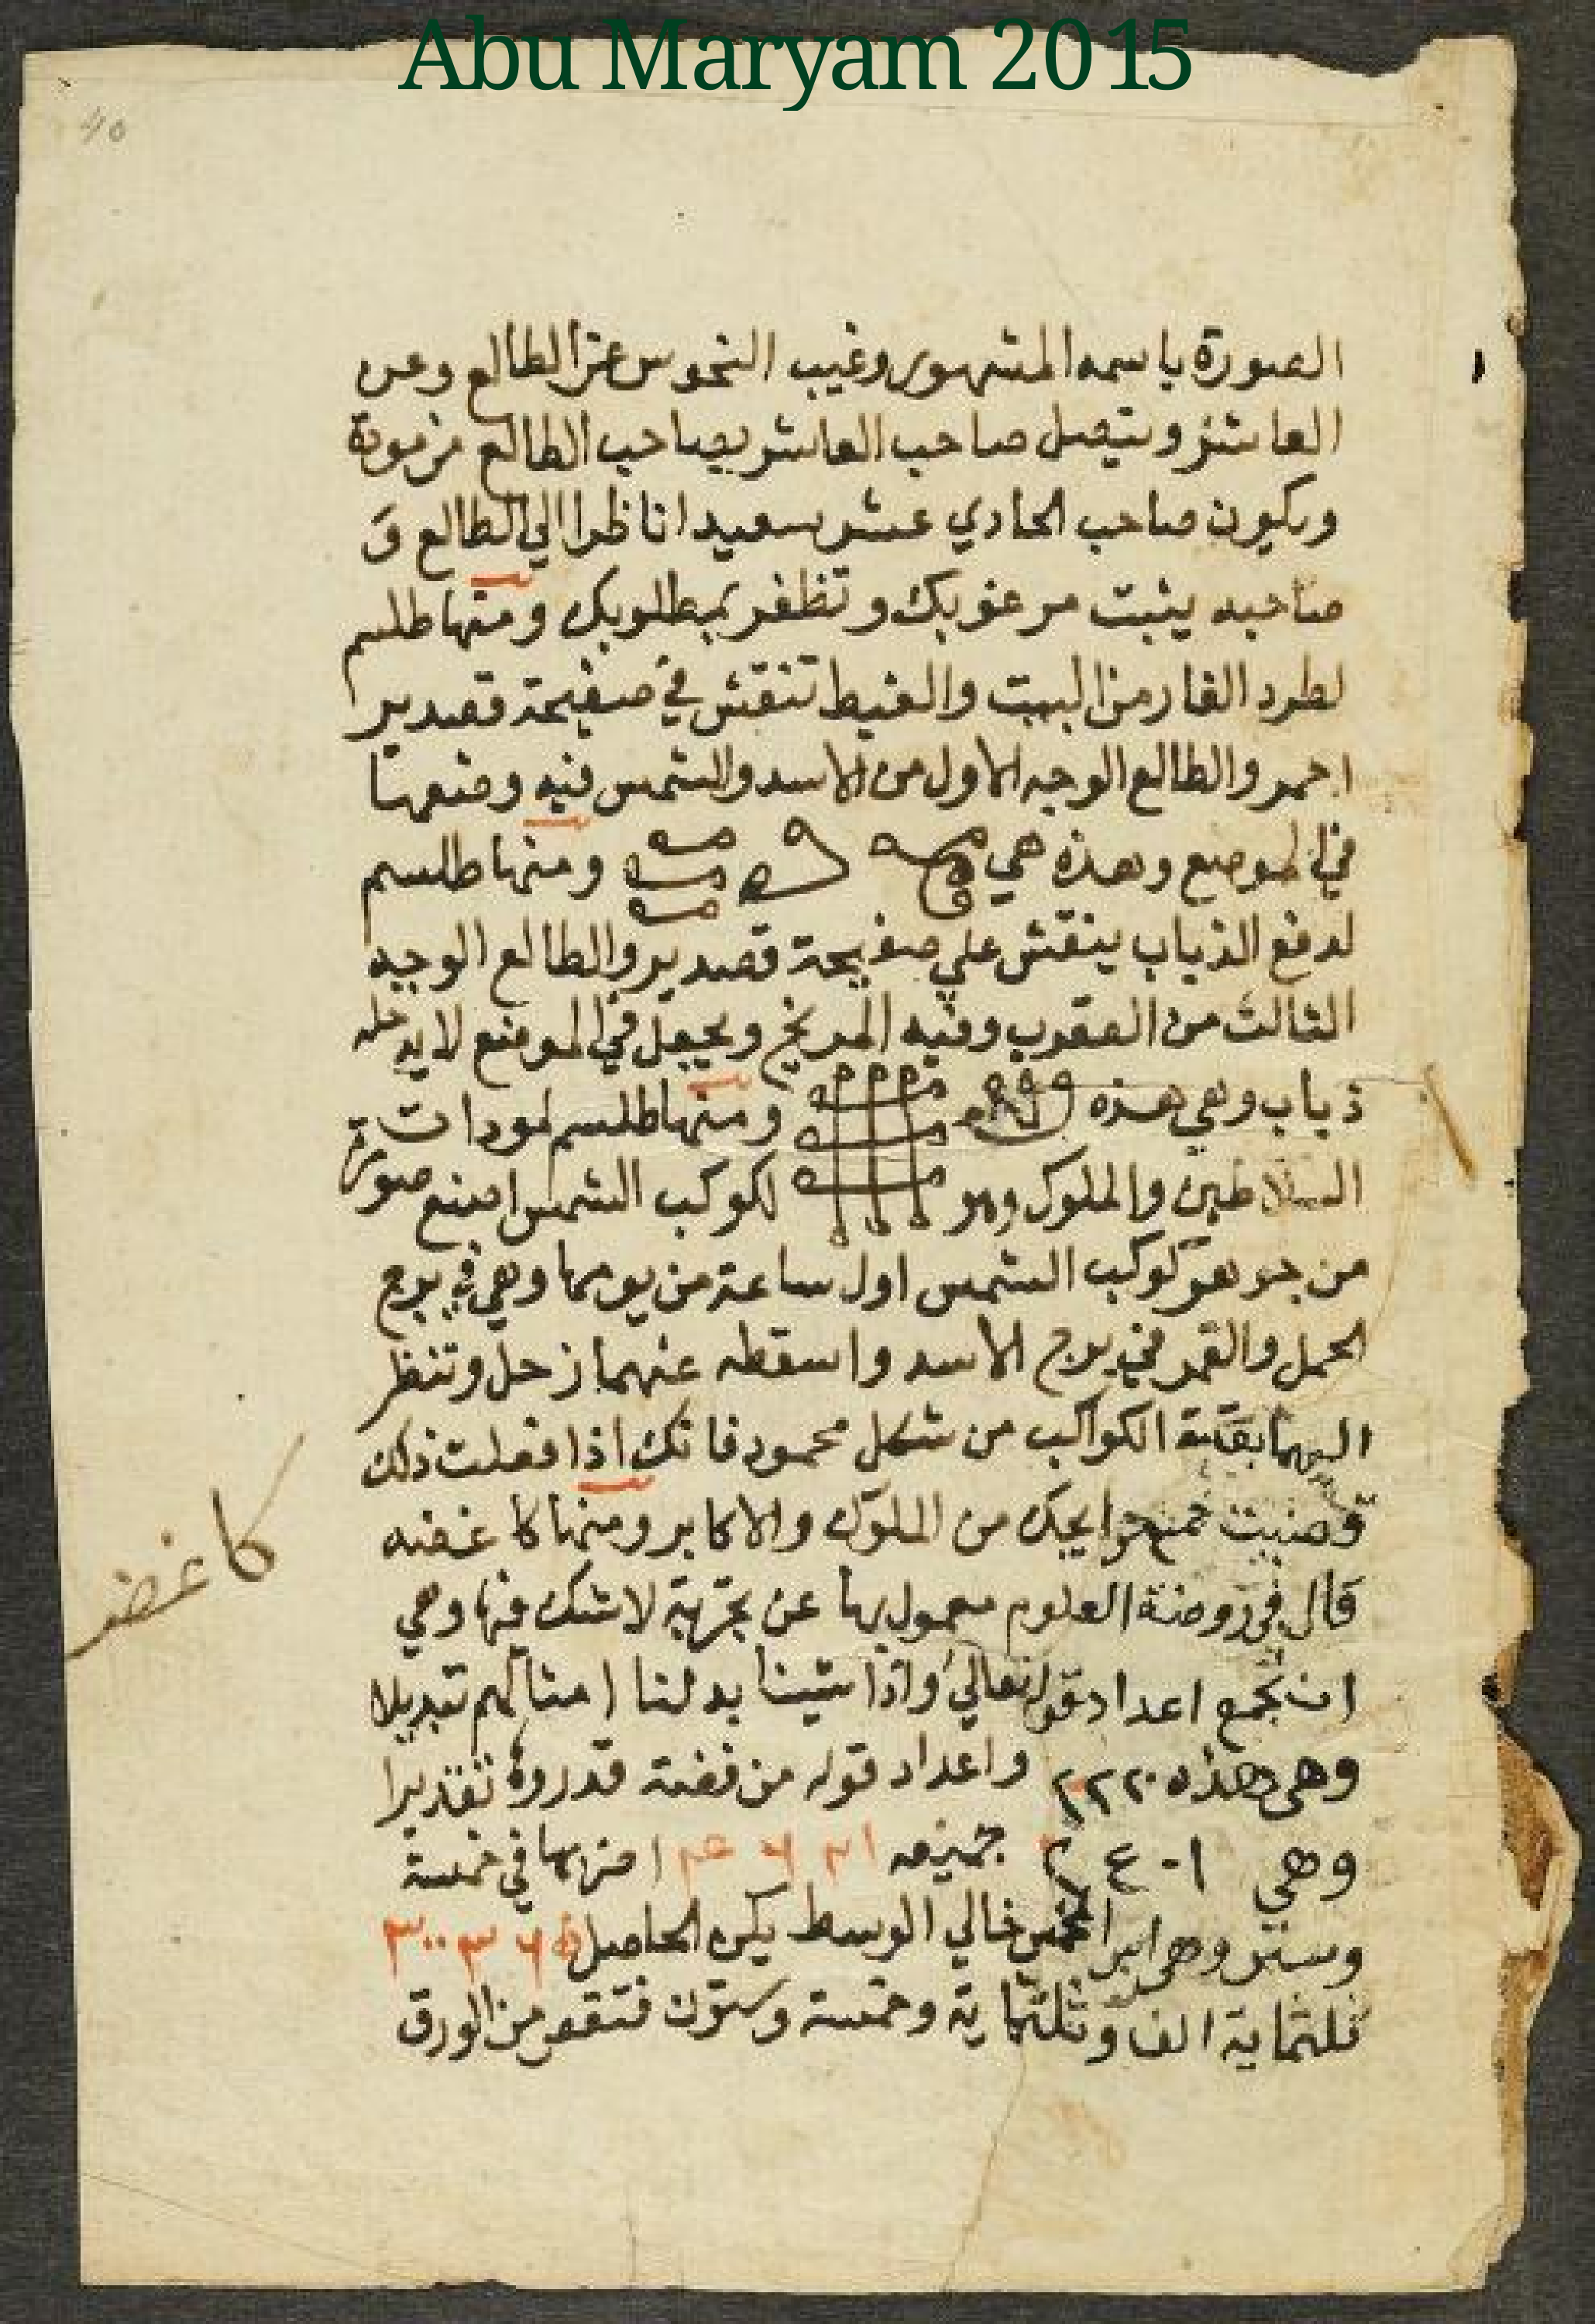 Abu Maryam 2015
40
الصورة باسمه المشهور وغيب النحوس عن الطالع وعن
العاشر ويتصل صاحب العاشر بصاحب الطالع من مودة
ويكون صاحب الحادي عشر سعيدا ناظرا الي الطالع وَ
صاحبه يثبت مرغوبك وتظفر بمطلوبك ومنها طلسم
لطرد الفار من البيت والغيط تنقش في صفيحة قصدير
احمر والطالع الوجه الاول من الاسد والشمس فيه وضعها
في الموضع وهذه هي ومنها طلسم
لدفع الذباب ينقش علي صفيحة قصدير والطالع الوجه
الثالث من العقرب وفيه المريخ ويجعل في الموضع لا يدخله
ذباب وهي هذه ومنها طلسم لمودات
السلاطين والملوك وهو لكوكب الشمس اصنع صورة
من جوهر كوكب الشمس اول ساعة من يومها وهي في برج
الحمل والقمر في برج الاسد واسقطه عنهما زحل وتنظر
اليهما بقية الكواكب من شكل محمود فانك اذا فعلت ذلك
حوايجك من الملوك والاكابر ومنها كاغضه
قال في روضة العلوم معمول بها عن تجربة لا شك فيها وهي
ان تجمع اعداد قوله تعالي واذا شينا بدلنا امثالهم تبديلا
وهي هذه ٢٢٢٠ واعداد قوله من فضة قدروها تقديرا
وهي جميعه اضربها في خمسة
وستين وهي المخمس خالي الوسط يكن الحاصل
ثلثماية الف وثلثماية وخمسة وستون فتقص من الورق
كاغضه